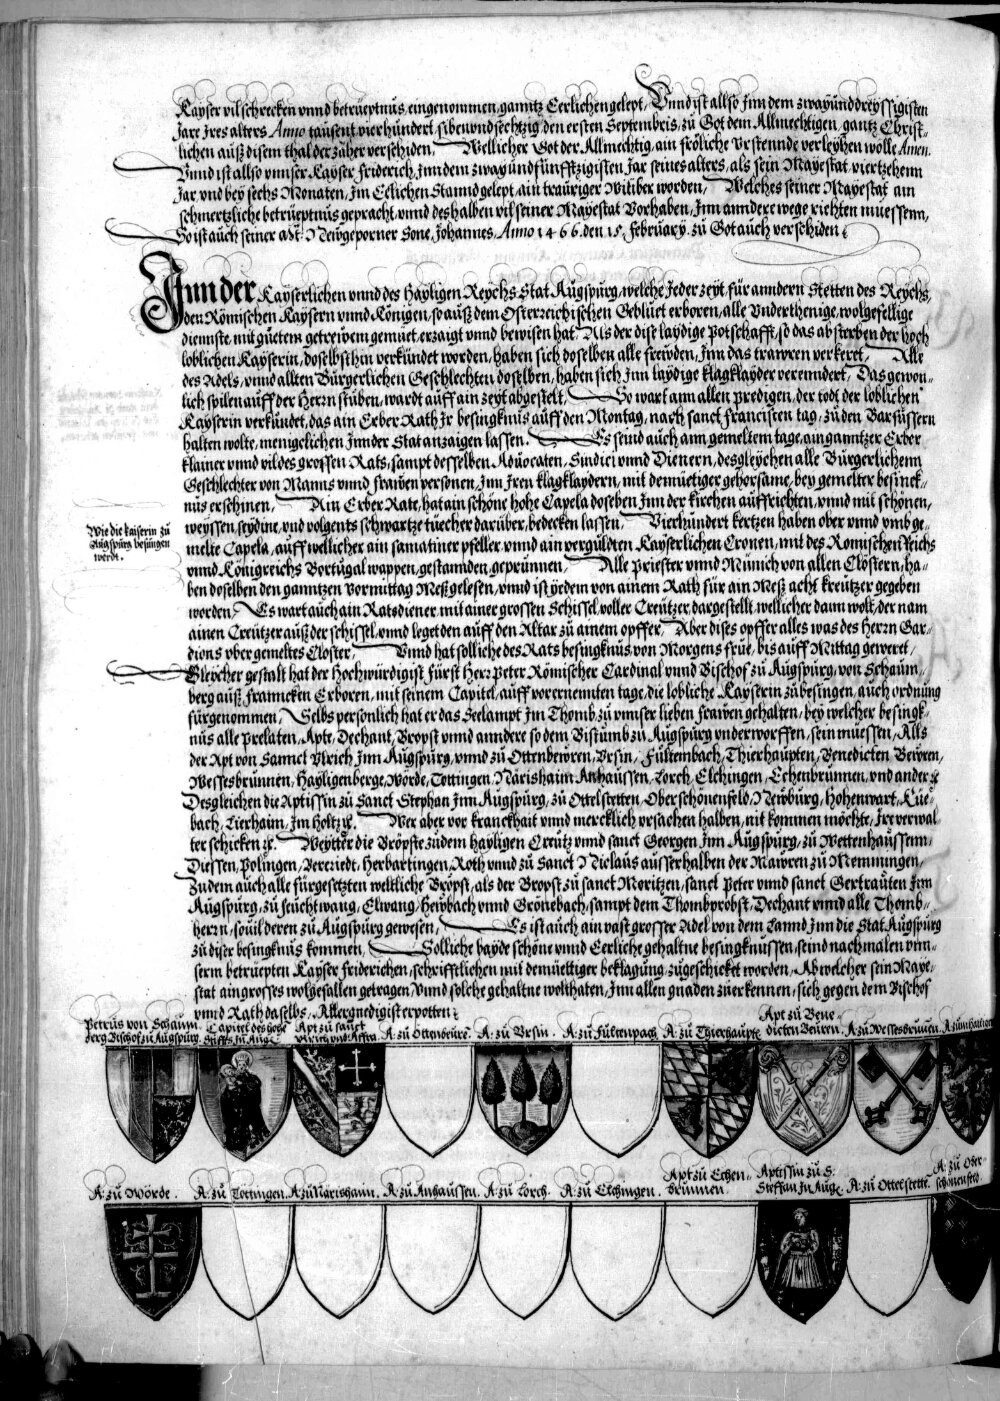 Kayser vil schrecken vnnd betrüeptnüs eingenommen, ganntz Eerlichen gelept, Vnnd ist allso Jnn dem zwayünddreyssigisten
Jare Jres alters Anno taüsent vierhündert sibenvndsechtzig den ersten Septembris, zü Got dem Allmechtigen, gantz Christ-
lichen aüß disem thal der zäher verschiden, Wellicher Got der Allmechtig, ain fröliche Vrstennde verleyhen wolle Amen.
Vnnd ist allso vnnser Kayser Friderich, Jnn dem zwayündfünfftzigisten Jar seines alters, als sein Mayestat viertzehenn
Jar, vnd bey sechs Monaten, Jm Eelichen Stannd gelept, ain traüriger Witiber worden, Welches seiner Mayestat ain
schmertzliche betrüeptnüs gepracht, vnnd deshalben vil seiner Mayestat Vorhaben, Jnn anndere wege richten muessenn,
So ist aüch seiner Mt: Newgeporner Sone, Johannes, Anno 1466. den 15. February. zü Got aüch verschiden
Jnn der Kayserlichen vnnd des Hayligen Reychs Stat Aügspürg, welche Jeder zeyt, für anndern Stetten des Reychs,
den Römischen Kaysern vnnd Königen, so aüß dem Osterreichischen Geblüet erboren, alle Vnderthenige, wolgefellige
diennste, mit güetem getrewem gemüet, erzaigt vnnd bewisen hat, Als der dise laydige Potschafft, so das absterben der hoch
loblichen Kayserin, doselbsthin verkündet worden, haben sich doselben alle freẅden, Jnn das trawren verkeret, Alle
des Adels, vnnd allten Bürgerlichen Geschlechten doselben, haben sich Jnn laydige klagklayder verenndert, Das gewon-
lich spilen aüff der Herrn stüben, wardt aüff ain zeyt abgestelt, So wart ann allen predigen, der todt der loblichen
Kayserin verkündet, das ain Erber Rath Jr besingknüs aüff den Montag, nach sanct Franciscen tag, zü den Barfüssern
halten wolte, menigelichen Jnn der Stat anzaigen lassen. Es seind aüch ann gemeltem tage, ain ganntzer Erber
klainer vnnd vil des grossen Rats, sampt desselben Advocaten, Sindici vnnd Dienern, desgleychen alle Bürgerlichenn
Geschlechter von Manns vnnd frawen personen, Jnn Jren klagklaydern, mit demüetiger gehorsame, bey gemelter besinck-
nüs erschinen, Ain Erber Rate, hat ain schöne hohe Capela doseben Jnn der kirchen aüffrichten, vnnd mit schönen,
weyssen, seydine, vnd volgents schwartze tüecher darüber, bedecken lassen, Vierhündert kertzen haben ober vnnd vmb ge-
melte Capela, aüff wellicher ain samatiner pfeller, vnnd ain vergülden Kayserlichen Cronen, mit des Romischen Reichs
vnnd Königreichs Portügal wappen, gestannden, geprünnen, Alle Priester vnnd Münich von allen Clöstern, ha-
ben doselben den ganntzen Vormittag Meß gelesen, vnnd ist yedem von ainem Rath für ain Meß acht kreützer gegeben
worden, Es wart aüch ain Ratsdiener, mit ainer grossen Schissel, voller Creützer, dargestellt, wellicher dann wolt, der nam
ainen Creützer aüß der schissel, vnnd leget den aüff den Altar zü ainem opffer, Aber dises opffer alles was des Herrn Gar-
dions vber gemeltes Closter, Vnnd hat solliche des Rats besingknüs, von Morgens früe, bis aüff Mittag geweret,
Gleycher gestalt hat der Hochwürdigist Fürst Herr Peter Römischer Cardinal vnnd Bischof zü Aügspürg, von Schaüm-
berg aüß Franncken Erboren, mit seinem Capitel, aüff vorernennten tage, die lobliche Kayserin zü besingen, aüch ordnüng
fürgenommen, Selbs persönlich hat er das Seelampt Jm Thomb zü vnnser lieben Frawen gehalten, bey welcher besingk-
nüs alle prelaten, Apte, Dechant, Bröpst vnnd anndere so dem Bistümb zü Aügspürg vnderworffen, sein müessen, Alls
der Apt von Sannct Vlrich Jnn Aügspürg, vnnd zü Ottenbewren, Vrsin, Fültenbach, Thierhaüpten, Benedicten Bewren,
Wessesbrünnen, Hayligenberge, Wörde, Tottingen, Närishaim, Anhaüssen, Lorch, Elchingen, Echenbrünnen, vnd ander ꝛc
Desgleichen die Aptissin zü Sanct Stephan Jnn Aügspürg, zü Ottelstetten, Oberschönenfeld, Newbürg, Hohenwart, Küe-
bach, Lierhaim, Jm Holtz ꝛc. Wer aber vor kranckhait vnnd mercklich vrsachen halben, nit kommen möchte, Jre verwal-
ter schicken ꝛc. Weytter die Bröpste zü dem hayligen Creütz vnnd sanct Georgen Jnn Aügspürg, zü Wettenhaüssenn,
Diessen, Polingen, Vereriedt, Herbartingen, Roth vnnd zü Sanct Niclaüs aüsserhalben der Mawren zü Memmingen,
Züdem aüch alle fürgesetzten weltliche Bröpst, als der Bropst zü sanct Moritzen, sanct Peter vnnd sanct Gertraüten Jnn
Aügspürg, zü Feüchtwang, Elwang, Hewbach vnnd Grönebach, sampt dem Thombpröbst, Dechant vnnd alle Thomb-
herrn, souil deren zü Aügspürg gewesen, Es ist aüch ain vast grosser Adel von dem Lannd Jnn die Stat Aügspürg
zü diser besingknüs kommen, Solliche bayde schöne vnnd Eerliche gehaltne besingknüssen, seind nachmalen vnn-
serm betrüepten Kayser Friderichen, schrifftlichen mit demüettiger beklagüng, zügeschicket worden, Ab welcher sein Maye-
stat ain grosses wolgefallen getragen, Vnnd solche gehaltne wolthaten, Jnn allen gnaden zü erkennen, sich gegen dem Bischof
vnnd Rath daselbs, Allergnedigist erpotten
Wie die kaiserin zü
Aügspürg besüngen
werdt.
Petrüs von Schaüm-
berg Bischof zü Aügspürg
Capitel des hohe
Stiffts zü Aüg:
Apt zü sanct
Vlrich vnd Affra
A: zü Ottenbeüre.
A: zü Vrsin.
A: zü Fültenpach
A: zü Thierhaüpte
Apt zü Bene-
dicten Beüren.
A: zü Wessesbrünnen
A: zü Wörde.
A: zü Tottingen.
A: zü Närishann.
A: zü Anhaüssen
A: zü Lorch.
A: zü Elchingen.
Apt zü Echen-
brünnen.
Aptissin zü S:
Steffan Jn Aüg:
A: zü Ottelstette.
A: zü Ober-
schönenfeld.